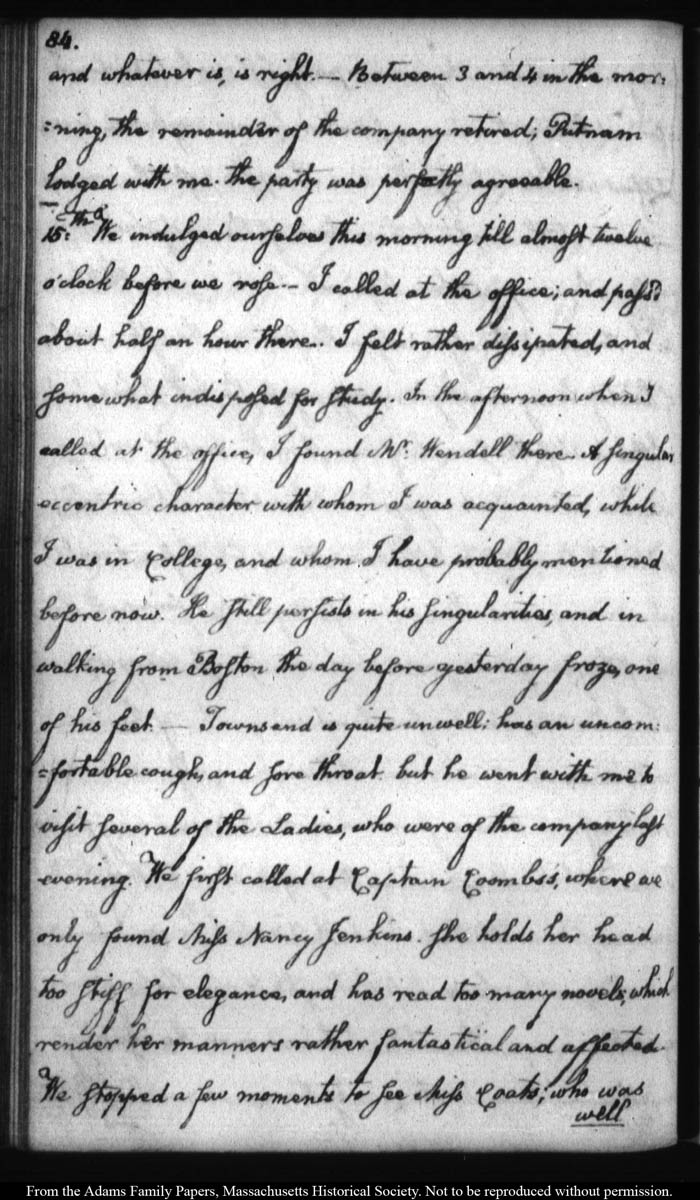 84.
and whatever is, is right. — Between 3 and 4 in the mor:
=ning, the remainder of the company retired; Putnam
lodged with me. the party was perfectly agreeable.
15:th We indulged ourselves this morning till almost twelve
o'clock before we rose. — I called at the office; and pass'd
about half an hour there. I felt rather dissipated, and
somewhat indisposed for study. In the afternoon when I
called at the office, I found Mr. Wendell there. A singular
eccentric character with whom I was acquainted, while
I was in College, and whom I have probably mentioned
before now. He still persists in his singularities, and in
walking from Boston the day before yesterday froze, one
of his feet. — Townsend is quite unwell: has an uncom:
=fortable cough, and sore throat. but he went with me to
visit several of the Ladies, who were of the company last
evening. We first called at Captain Coombs's, where we
only found Miss Nancy Jenkins. She holds her head
too stiff for elegance, and has read too many novels; which
render her manners rather fantastical and affected.
We stopped a few moments to see Miss Coats; who was
well
From the Adams Family Papers, Massachusetts Historical Society. Not to be reproduced without permission.